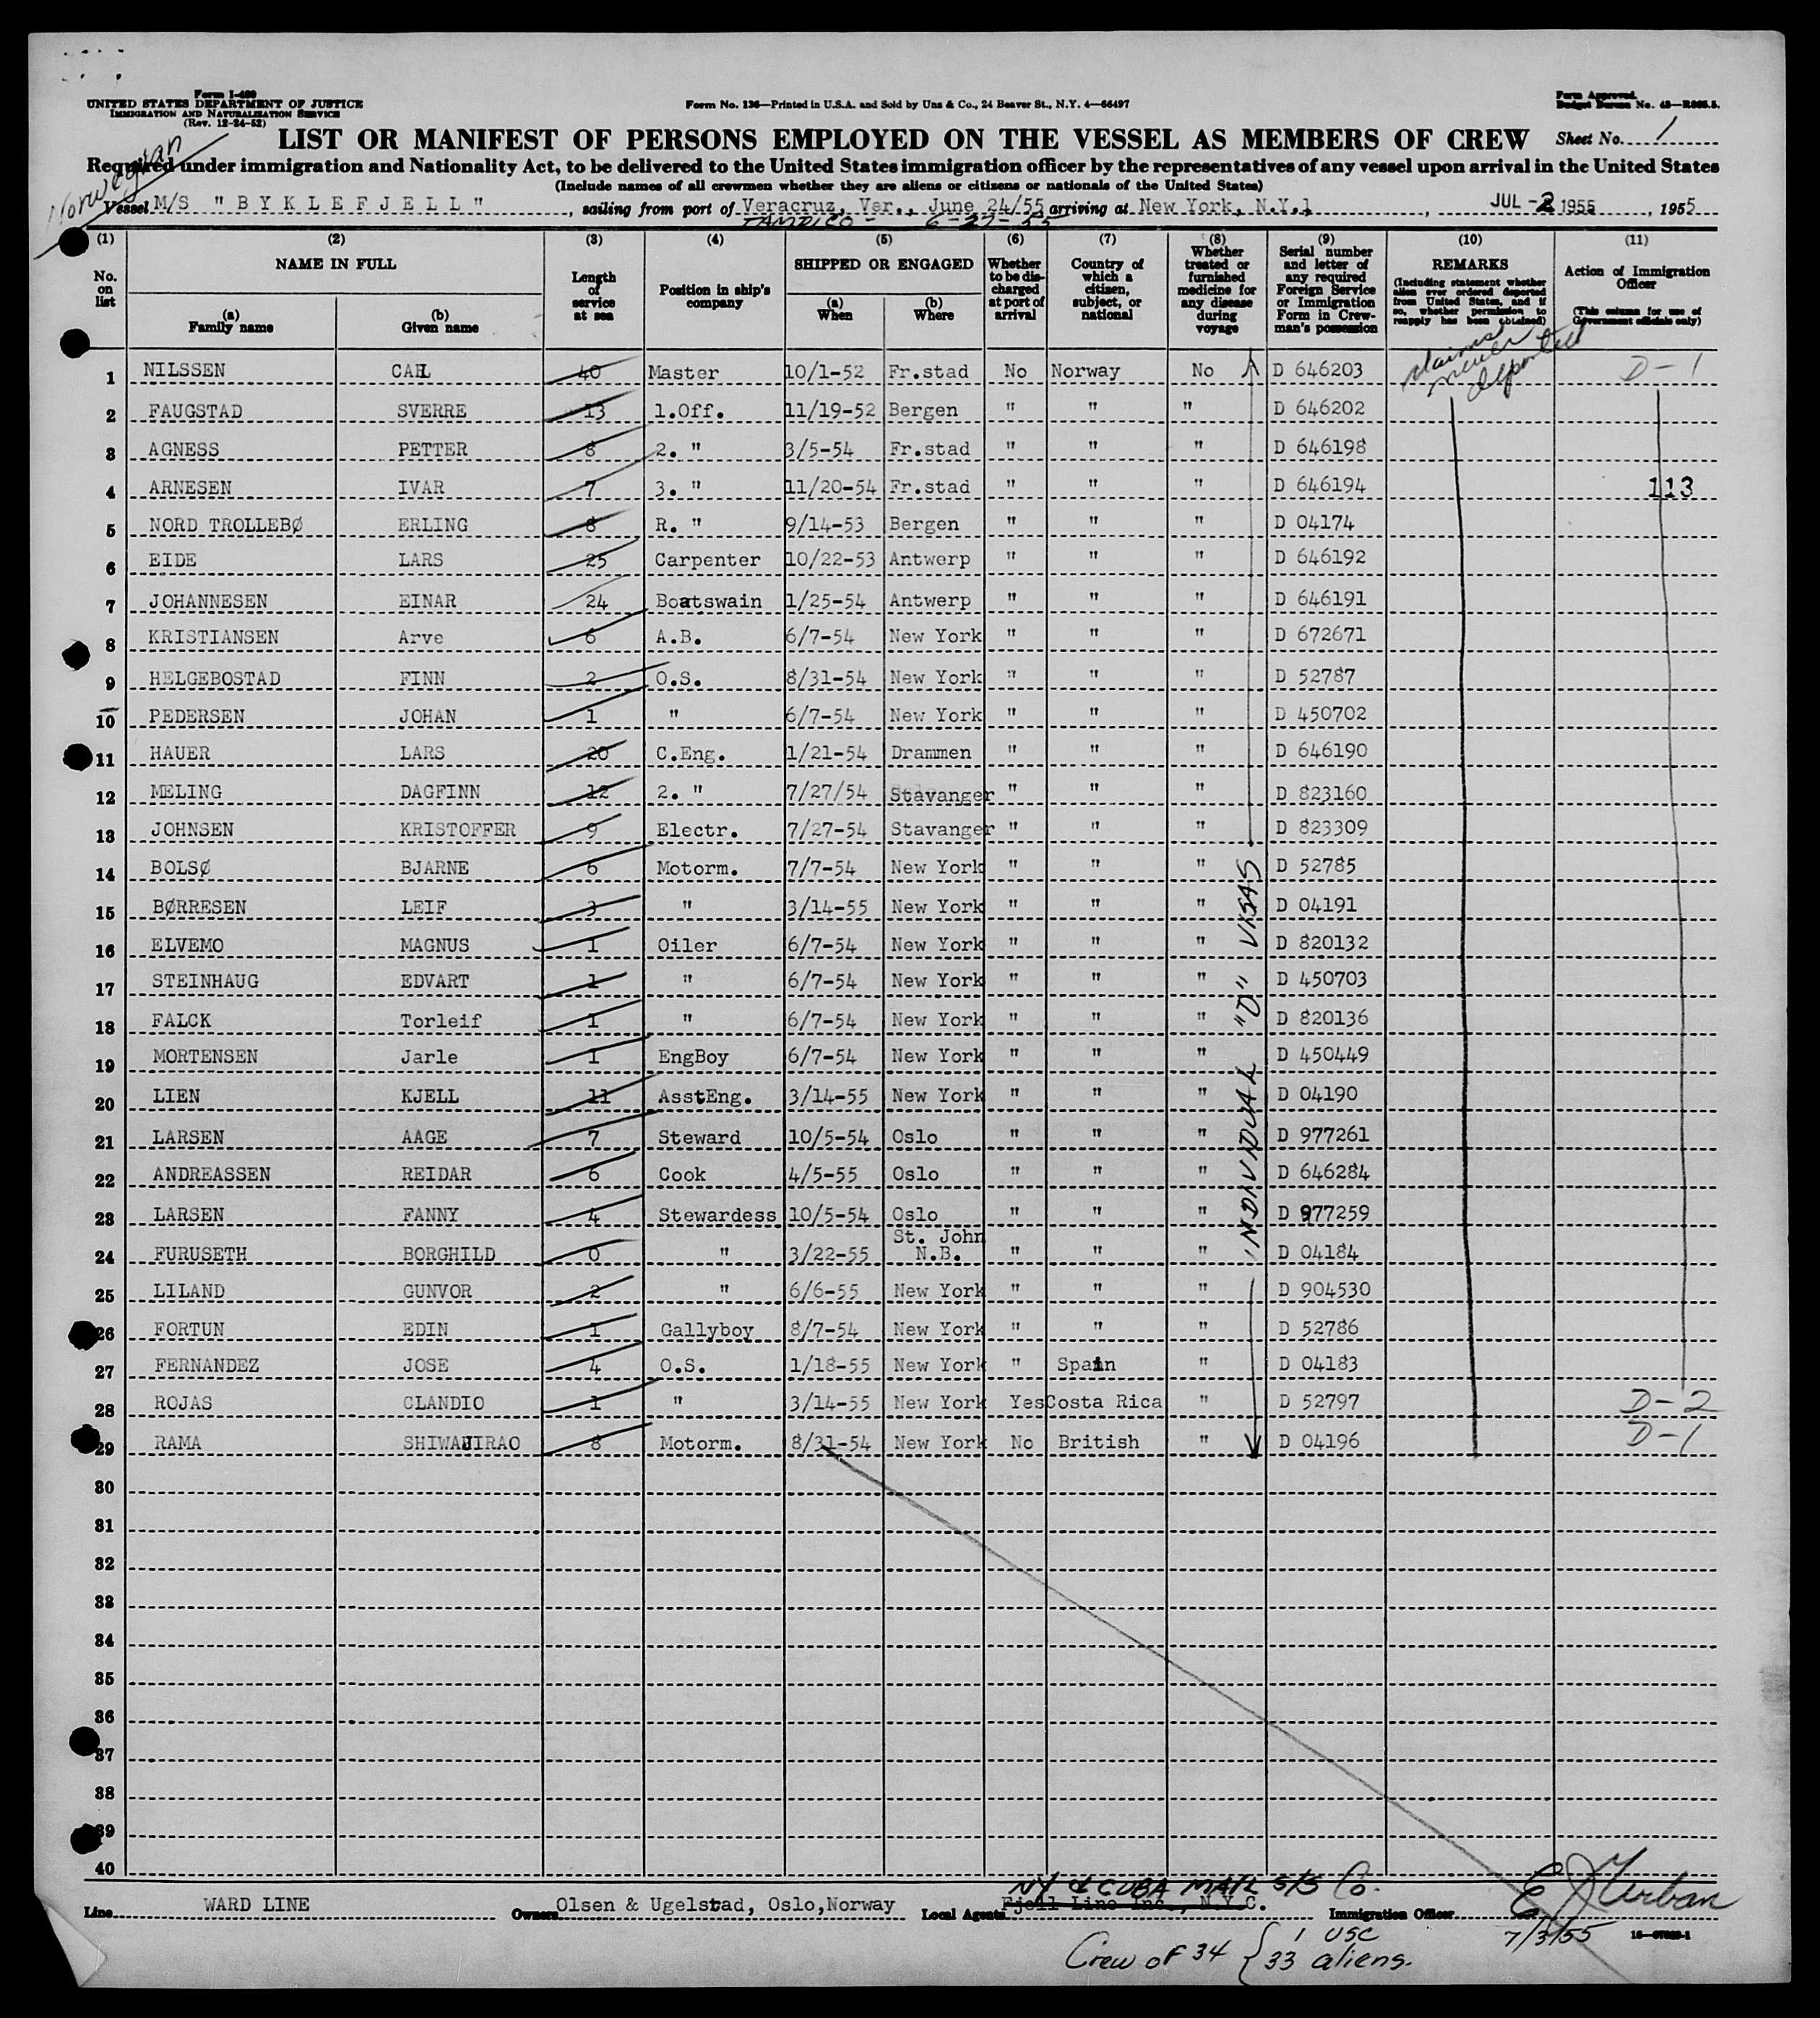 Form I-489
UNITED STATES DEPARTMENT OF JUSTICE
IMMIGRATION AND NATURALIZATION SERVICE
(Rev. 12-24-52)
Form No. 136—Printed in U.S.A. and Sold by Unz & Co., 24 Beaver St., N.Y. 4—66497
Form Approved.
Budget Bureau No. 43—R065.5.
Norwegian
LIST OR MANIFEST OF PERSONS EMPLOYED ON THE VESSEL AS MEMBERS OF CREW
Sheet No. 1
Required under immigration and Nationality Act, to be delivered to the United States immigration officer by the representatives of any vessel upon arrival in the United States
(Include names of all crewmen whether they are aliens or citizens or nationals of the United States)
Vessel M/S "BYKLEFJELL", sailing from port of Veracruz, Ver., June 24/55 arriving at New York, N.Y.1, JUL -2 1955, 1955
TAMPICO - 6-27-55
(1) (2) (3) (4) (5) (6) (7) (8) (9) (10) (11)
No. on list
NAME IN FULL
(a) Family name
(b) Given name
Length of service at sea
Position in ship's company
SHIPPED OR ENGAGED
(a) When
(b) Where
Whether to be discharged at port of arrival
Country of which a citizen, subject, or national
Whether treated or furnished medicine for any disease during voyage
Serial number and letter of any required Foreign Service or Immigration Form in Crewman's possession
REMARKS
(Including statement whether alien ever ordered deported from United States, and if so, whether permission to reapply has been obtained)
Action of Immigration Officer
(This column for use of Government officials only)
claims never deported
1 NILSSEN CARL 40 Master 10/1-52 Fr.stad No Norway No D 646203 D-1
2 FAUGSTAD SVERRE 13 1.Off. 11/19-52 Bergen " " " D 646202
3 AGNESS PETTER 8 2. " 3/5-54 Fr.stad " " " D 646198
4 ARNESEN IVAR 7 3. " 11/20-54 Fr.stad " " " D 646194 113
5 NORD TROLLEBØ ERLING 8 R. " 9/14-53 Bergen " " " D 04174
6 EIDE LARS 25 Carpenter 10/22-53 Antwerp " " " D 646192
7 JOHANNESEN EINAR 24 Boatswain 1/25-54 Antwerp " " " D 646191
8 KRISTIANSEN Arve 6 A.B. 6/7-54 New York " " " D 672671
9 HELGEBOSTAD FINN 2 O.S. 8/31-54 New York " " " D 52787
10 PEDERSEN JOHAN 1 " 6/7-54 New York " " " D 450702
11 HAUER LARS 20 C.Eng. 1/21-54 Drammen " " " D 646190
12 MELING DAGFINN 12 2. " 7/27/54 Stavanger " " " D 823160
13 JOHNSEN KRISTOFFER 9 Electr. 7/27-54 Stavanger " " " D 823309
14 BOLSØ BJARNE 6 Motorm. 7/7-54 New York " " " D 52785
15 BØRRESEN LEIF 3 " 3/14-55 New York " " " D 04191
16 ELVEMO MAGNUS 1 Oiler 6/7-54 New York " " " D 820132
17 STEINHAUG EDVART 1 " 6/7-54 New York " " " D 450703
18 FALCK Torleif 1 " 6/7-54 New York " " " D 820136
19 MORTENSEN Jarle 1 EngBoy 6/7-54 New York " " " D 450449
20 LIEN KJELL 11 AsstEng. 3/14-55 New York " " " D 04190
21 LARSEN AAGE 7 Steward 10/5-54 Oslo " " " D 977261
22 ANDREASSEN REIDAR 6 Cook 4/5-55 Oslo " " " D 646284
23 LARSEN FANNY 4 Stewardess 10/5-54 Oslo " " " D 977259
24 FURUSETH BORGHILD 0 " 3/22-55 St. John N.B. " " " D 04184
25 LILAND GUNVOR 2 " 6/6-55 New York " " " D 904530
26 FORTUN EDIN 1 Gallyboy 8/7-54 New York " " " D 52786
27 FERNANDEZ JOSE 4 O.S. 1/18-55 New York " Spain " D 04183
28 ROJAS CLANDIO 1 " 3/14-55 New York Yes Costa Rica " D 52797 D-2
29 RAMA SHIWAJIRAO 8 Motorm. 8/31-54 New York No British " D 04196 D-1
INDIVIDUAL "D" VISAS
30
31
32
33
34
35
36
37
38
39
40
NY & CUBA MAIL S/S Co.
Line WARD LINE Owners Olsen & Ugelstad, Oslo,Norway Local Agents Fjell Line Inc., N.Y.C. Immigration Officer E J Urban
7/3/55
Crew of 34 { 1 USC
33 aliens.